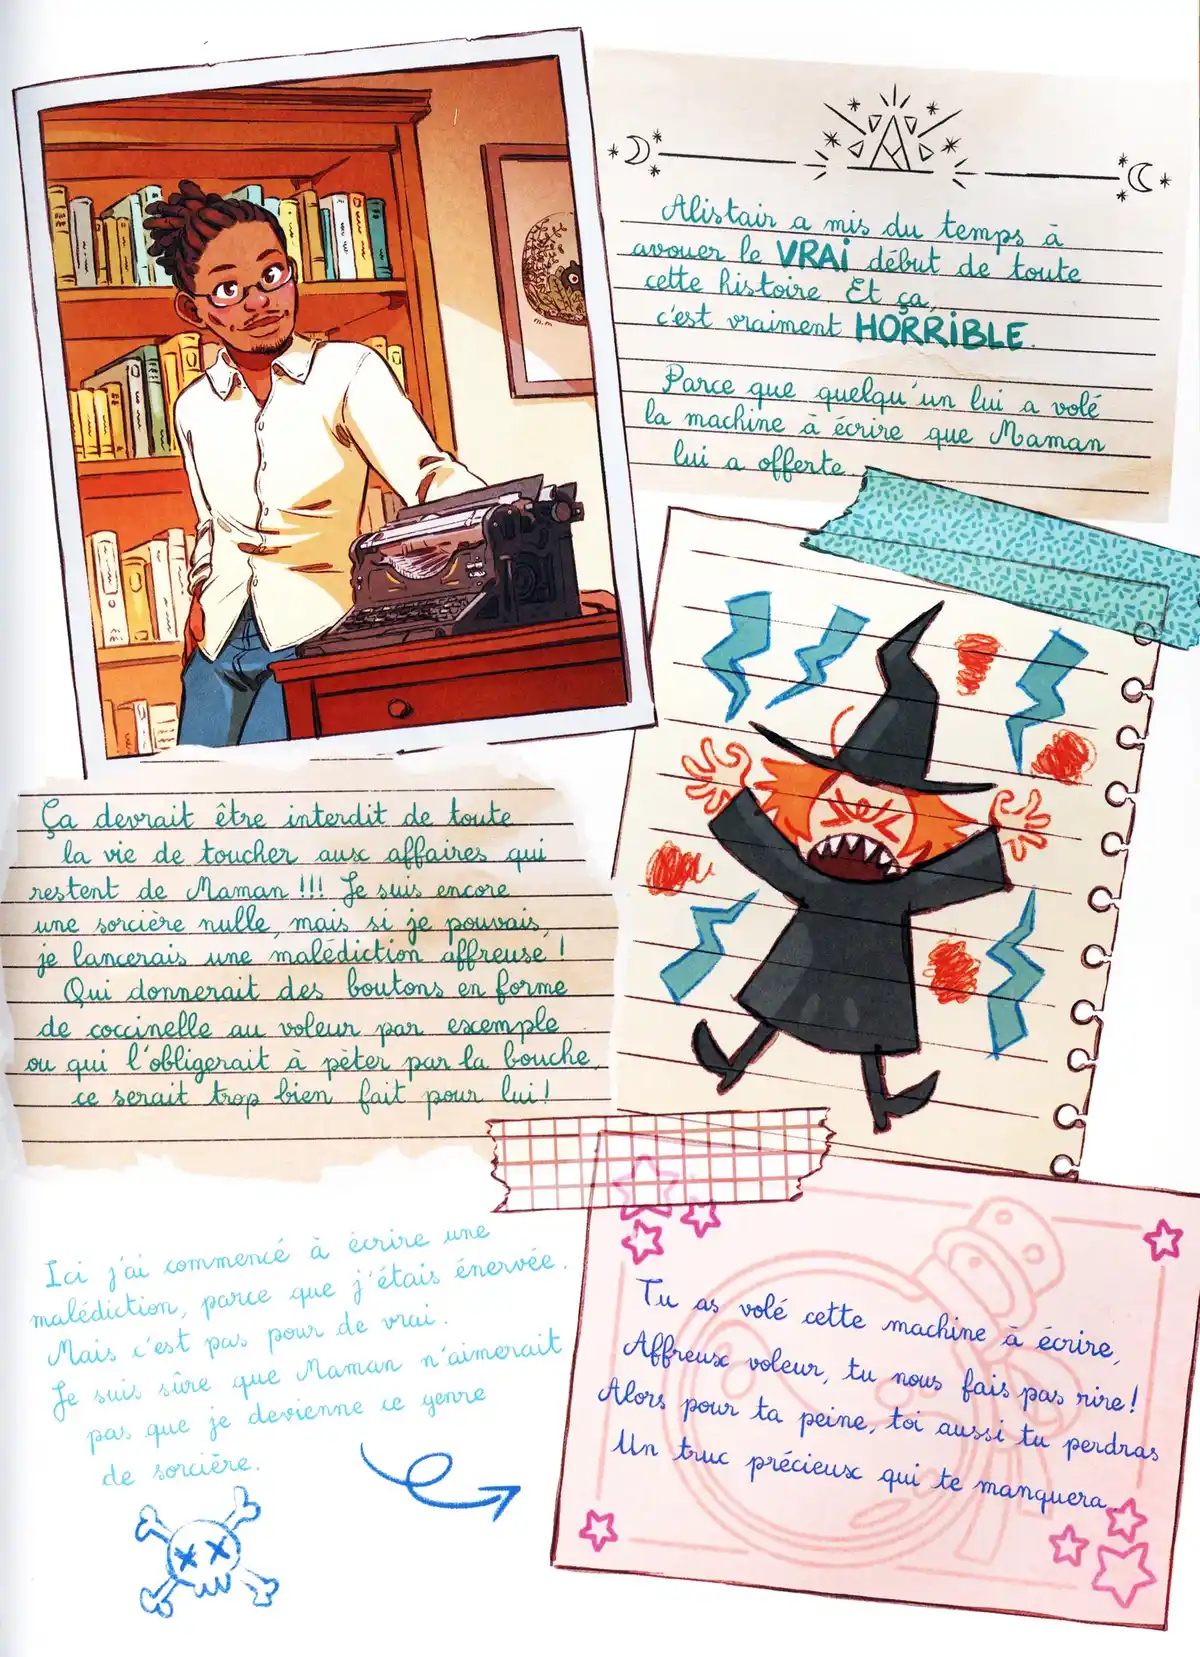 Alistair a mis du temps à
avouer le VRAi début de toute
cette histoire. Et ça,
c'est vraiment HORRiBLE.
Parce que quelqu'un lui a volé
la machine à écrire que Maman
lui a offerte.
Ça devrait être interdit de toute
la vie de toucher aux affaires qui
restent de Maman !!! Je suis encore
une sorcière nulle, mais si je pouvais,
je lancerais une malédiction affreuse !
Qui donnerait des boutons en forme
de coccinelle au voleur par exemple
ou qui l'obligerait à péter par la bouche,
ce serait trop bien fait pour lui !
Ici j'ai commencé à écrire une
malédiction, parce que j'étais énervée.
Mais c'est pas pour de vrai.
Je suis sûre que Maman n'aimerait
pas que je devienne ce genre
de sorcière.
Tu as volé cette machine à écrire,
Affreux voleur, tu nous fais pas rire !
Alors pour ta peine, toi aussi tu perdras
Un truc précieux qui te manquera.